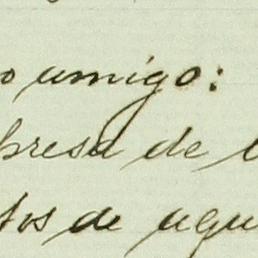 o amigo:
presa de
tos de aqu